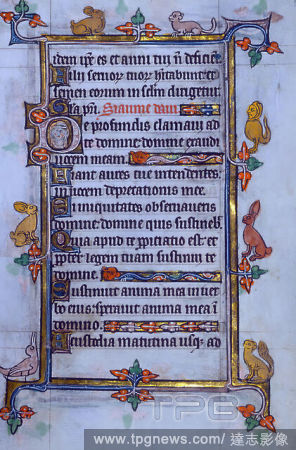 idem ipse es et anni tui n̄ deficiēt
filii seruor tuor h̄itabunt et
semen eorum in seclm dirigetur
Gl̄a pr̄i. Siaume dauī
De profundis clamaui ad
te domine domine exaudi
uocem meam
Fiant aures tue intendentes
in uocem deprecationis mee
Si iniquitates obseruaueris
domine domine quis sustineb̄
Quia apud te ꝓpitiatio est et
ꝓpter legem tuam sustinui te
domine
Sustinuit anima mea in uer
bo eius sperauit anima mea ī
domino
A custodia matutina usqꝫ ad
TPG
www.tpgnews.com/ 達志影像